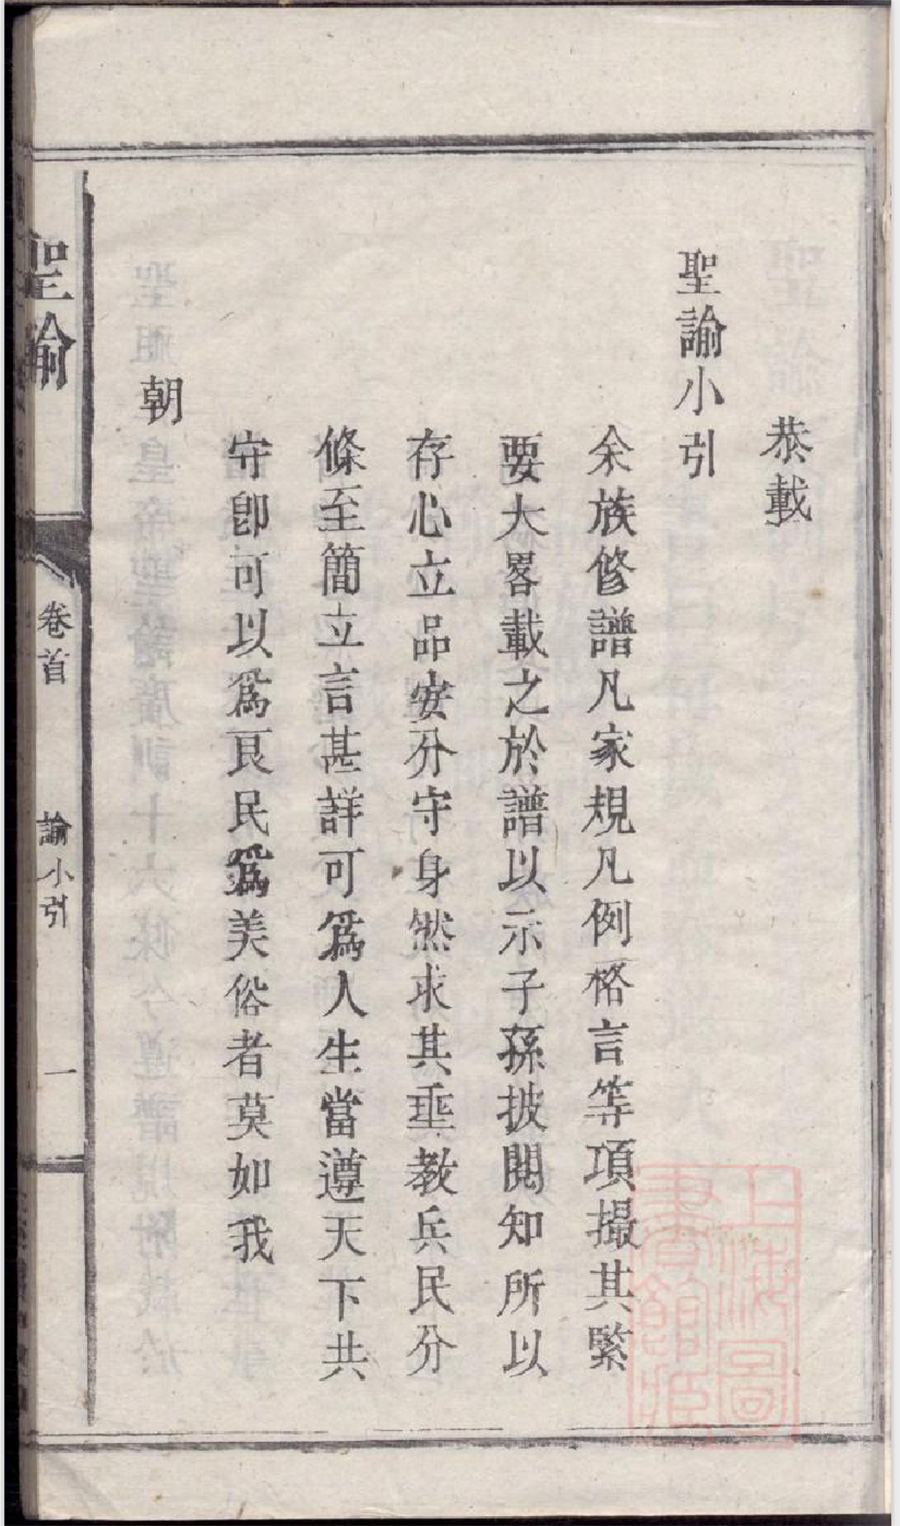 恭載
聖諭小引
余族修譜凡家規凡例格言等項撮其緊
要大畧載之於譜以示子孫披閱知所以
存心立品安分守身然求其垂教兵民分
條至簡立言甚詳可爲人生當遵天下共
守卽可以爲良民爲美俗者莫如我
朝
聖諭
卷首
諭小引
一
上海圖
書館藏